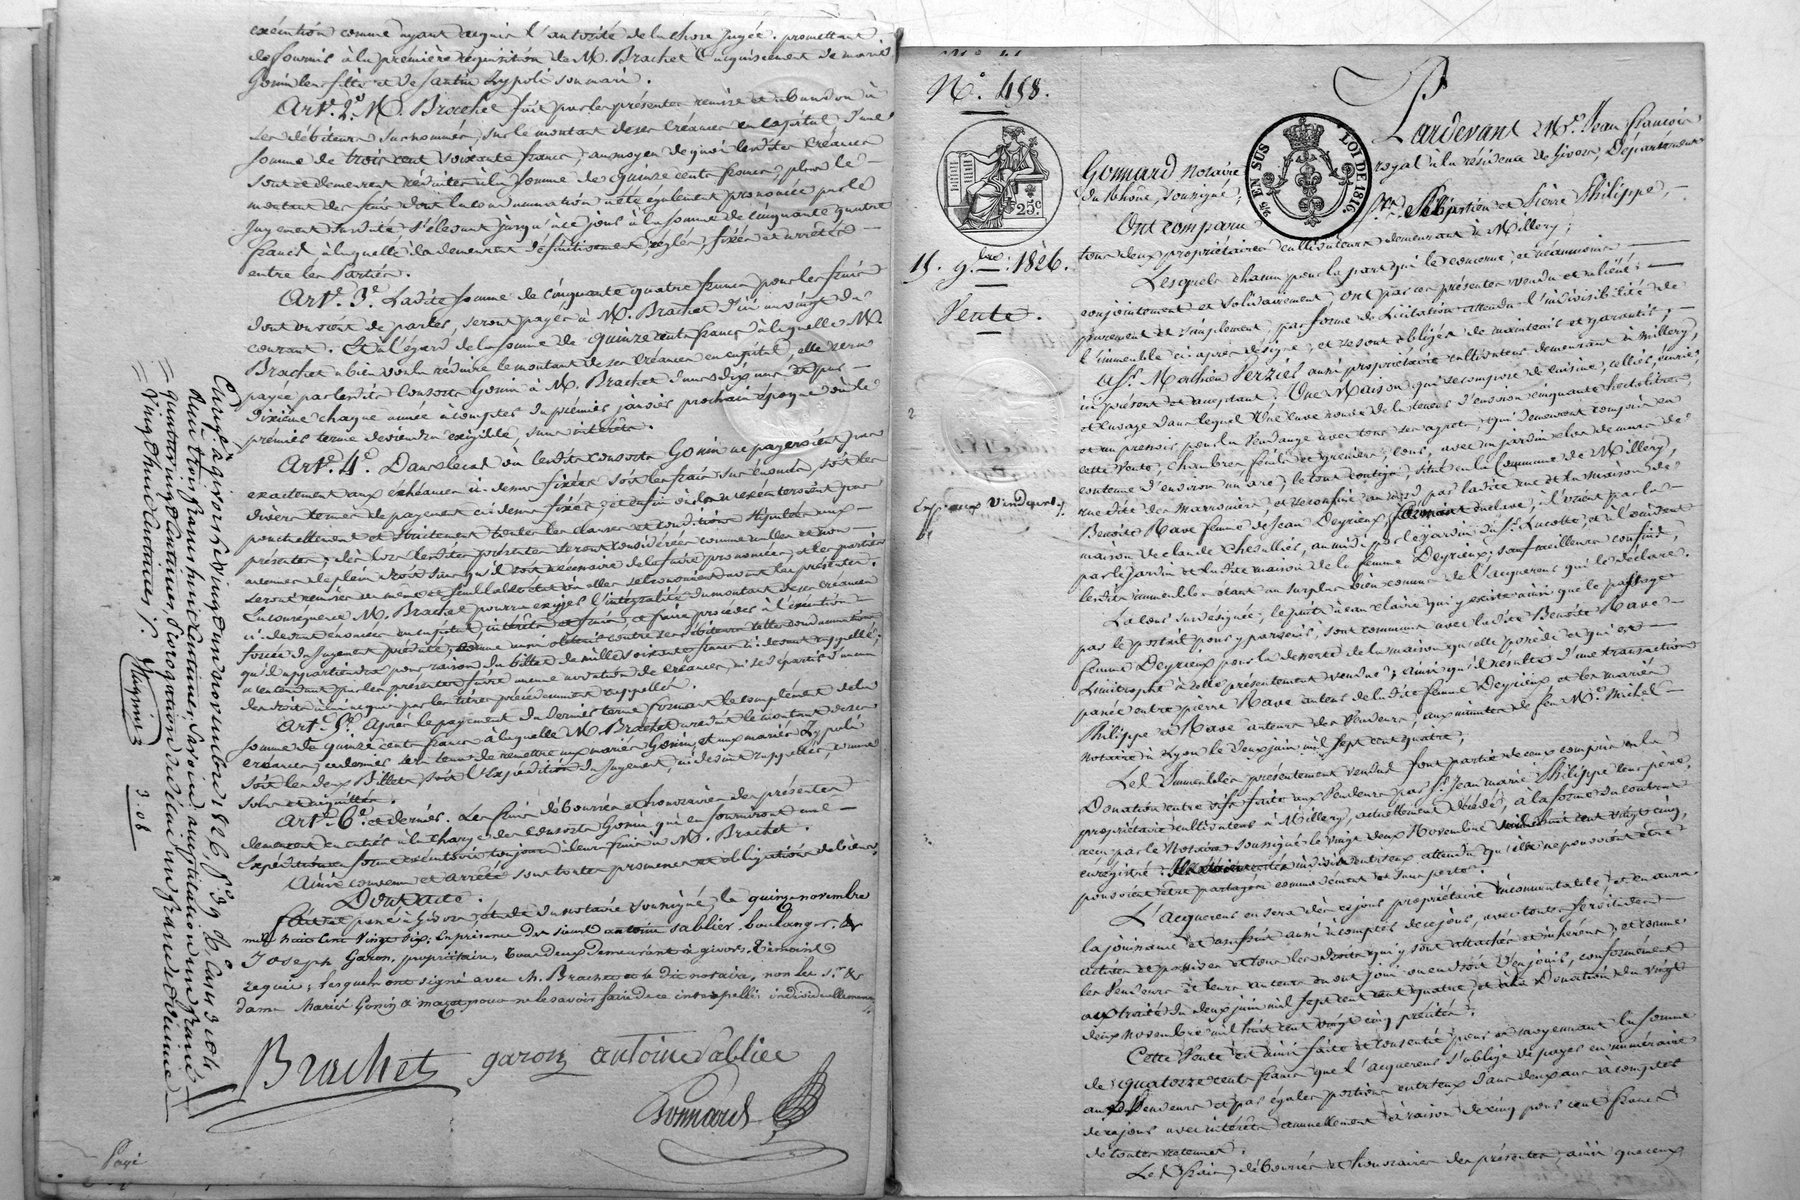 exécution comme ayant acquis l'autorité de la chose jugée. promettant
de fournir à la première réquisition de M. Brachet l'acquiescement de marie
Gonin leur fille et de Santin Zypoli son mari.
Art. 2. M. Brachet fait par les présentes remise et abandon à
ses débiteurs surnommés, sur le montant de ses créances en capital d'une
somme de trois cent soixante francs, au moyen de quoi lesdites créances
sont et demeurent réduites à la somme de quinze cents francs, plus le
montant des frais dont la condamnation a été également prononcée par le
Jugement susdaté s'élevant jusqu'à ce jour à la somme de cinquante quatre
francs à laquelle ils demeurent définitivement réglés, fixés et arrêtés
entre les Parties.
Art. 3e. Ladite somme de cinquante quatre francs pour les frais
dont on vient de parler, seront payés à M. Brachet d'ici au vingt du
courant. Et à l'égard de la somme de quinze cents francs à laquelle M.
Brachet a bien voulu réduire le montant de ses créances en capital, elle sera
payée par lesdits Consorts Gonin à M. Brachet dans dix ans et par
dixième chaque année à compter du premier janvier prochain époque où le
premier terme deviendra exigible, sans intérêts.
Art. 4e. Dans le cas où lesdits consorts Gonin ne payeraient pas
exactement aux échéances ci-dessus fixées soit les frais sus énoncés, soit les
divers termes de payement ci-dessus fixés, et enfin où ils n'exécuteroient pas
ponctuellement et strictement toutes les clauses et conditions stipulées aux
présentes; dès lors lesdites présentes seront considérées comme nulles et non
avenues de plein droit sans qu'il soit nécessaire de le faire prononcer, et les parties
seront remises au même et semblable état où elles se trouvoient avant les présentes.
En conséquence M. Brachet pourra exiger l'intégralité du montant de ses créances
ci-devant énoncées en capital, intérêts et frais, et faire procéder à l'exécution
forcée du Jugement précité,
qu'il appartiendra pour raison du billet de mille soixante francs ci-devant rappelé;
n'entendant par les présentes faire aucune novation de créances, ni se départir d'aucun
des droits à lui acquis par les titres précédemment rappelés.
Art. 5e. Après le payement du dernier terme formant le complément de la
somme de quinze cents francs à laquelle M. Brachet a réduit le montant de ses
créances, ce dernier sera tenu de remettre aux mariés Gonin et aux mariés Zypoli
soit les deux Billets, soit l'Expédition du Jugement, ci-dessus rappelés, comme
soldés et acquittés.
Art. 6e et dernier. Les frais déboursés et honoraires des présentes
demeurent en entier à la charge des Consorts Gonin qui en fourniront une
Expédition en forme exécutoire toujours à leurs frais à M. Brachet.
Ainsi convenu et arrêté sous toutes promesses et obligations de biens.
Dont acte.
Fait et passé à Givors, étude du notaire soussigné, le quinze novembre
mil huit cent vingt six; En présence des sieurs antoine Sablier, boulanger, &
Joseph Garon, propriétaire, tous deux demeurant à givors. Témoins
requis; lesquels ont signé avec M. Brachet et le dit notaire, non les Sr. &
dame Mariés Gonin & Magat pour ne le savoir faire de ce interpellés individuellement
Brachet garon antoine Sablier
Gonnard
Payé
Enrgé. à givors le vingt un novembre 1826, fo. 9 Vo. Cases 3 et 4
Reçu trois francs huit centimes, Savoir: au quittation un franc
quatre vingt centimes, Prorogation de délai un franc et dixme
Vingt huit centimes /.
3.08
No. 458.
25c.
15. 9bre. 1826.
Vente.
2
Exp. aux Vendeurs /.
25c EN SUS LOI DE 1816.
Pardevant Me. Jean François
Gonnard notaire royal à la résidence de Givors, Département
du Rhône, soussigné;
Ont comparu Srs. Sébastien et Pierre Philippe,
tous deux propriétaires cultivateurs demeurant à Millery;
Lesquels chacun pour la part qui le concerne et néanmoins
conjointement et solidairement, ont par ces présentes vendu et aliéné
purement et simplement, par forme de licitation attendu l'indivisibilité de
l'immeuble ci-après désigné, et se sont obligés de maintenir et garantir;
Au Sr. Mathieu Verzier aussi propriétaire cultivateur demeurant à Millery,
ici présent et acceptant: Une Maison qui se compose de cuisine, cellier, écurie,
et cuvage dans lequel Une cuve ronde de la teneur d'environ cinquante hectolitres,
et un pressoir pour la vendange avec tous ses agrès, qui demeurent compris en
cette Vente, chambres, fenils et greniers; cour, avec un jardin clos de murs de
contenue d'environ un are; le tout contigu, situé en la Commune de Millery,
rue dite des marronniers, et se confine au nord par ladite rue et la maison de
Benoîte Rave femme de Jean Deyrieux, formant enclave; à l'orient par la
maison de claude Chevallier, au midi par le jardin du Sr. Lacotte, et à l'occident
par le jardin et ladite maison de la femme Deyrieux; sauf meilleurs confins,
lesdits immeubles étant au surplus bien connus de l'acquéreur qui le déclare.
La cour susdésignée, le puits à eau claire qui y existe ainsi que le passage
par le portail pour y parvenir, sont communs avec ladite Benoîte Rave
femme Deyrieux pour la desserte de la maison qu'elle possède et qui est
limitrophe à celle présentement vendue; ainsi qu'il résulte d'une transaction
passée entre pierre Rave auteur de ladite femme Deyrieux et les mariés
Philippe & Rave auteurs des Vendeurs; aux minutes de feu Me. Michel
notaire à Lyon le deux juin mil sept cent quatre;
Les Immeubles présentement vendus font partie de ceux compris en la
Donation entre vifs faite aux Vendeurs par Sr. Jean marie Philippe leur père,
propriétaire cultivateur à Millery, actuellement décédé, à la forme du contrat
reçu par le Notaire soussigné le vingt deux Novembre mil huit cent vingt cinq,
enregistré indivis entr'eux attendu qu'elle ne pouvoient être
pouvoient être partagés commodément et sans perte.
L'acquéreur en sera dès ce jour propriétaire incommutable, et en aura
la jouissance et usufruit aussi à compter de ce jour, avec toutes servitudes
actives et passives et tous les droits qui y sont attachés et inhérents, et comme
les Vendeurs et leurs auteurs en ont joui ou en droit d'en jouir, conformément
au traité du deux juin mil sept cent quatre, et à la Donation du vingt
deux novembre mil huit cent vingt cinq précités.
Cette Vente est ainsi faite et consentie pour et moyennant la somme
de quatorze cents francs que l'acquéreur s'oblige de payer en numéraire
aux Vendeurs et par égales portions entr'eux dans deux ans à compter
de ce jour avec intérêts annuellement à raison de cinq pour cent francs
de toutes retenues.
Les frais, déboursés et honoraires des présentes, ainsi que ceux